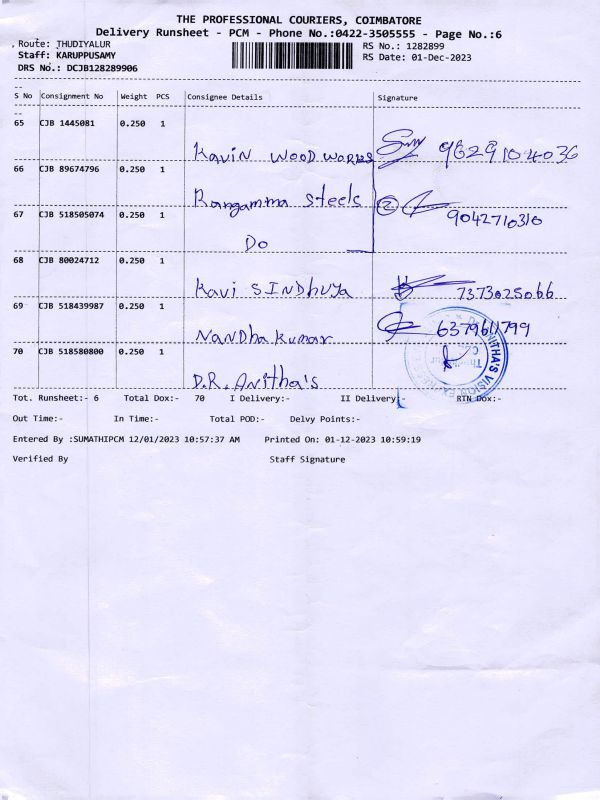 THE PROFESSIONAL COURIERS, COIMBATORE
Delivery Runsheet - PCM - Phone No.:0422-3505555 - Page No.:6
Route: THUDIYALUR RS No.: 1282899
Staff: KARUPPUSAMY RS Date: 01-Dec-2023
DRS No.: DCJB128289906
S No Consignment No Weight PCS Consignee Details Signature
65 CJB 1445081 0.250 1
Kavin wood works 9629104036
66 CJB 89674796 0.250 1
Rangamma steels
67 CJB 518505074 0.250 1 ② 9042710310
Do
68 CJB 80024712 0.250 1
Kavi SINDhuya 7373025066
69 CJB 518439987 0.250 1
Nandha kumar 6379611799
70 CJB 518580800 0.250 1
D.R. Anitha's
Tot. Runsheet:- 6 Total Dox:- 70 I Delivery:- II Delivery:- RTN Dox:-
Out Time:- In Time:- Total POD:- Delvy Points:-
Entered By :SUMATHIPCM 12/01/2023 10:57:37 AM Printed On: 01-12-2023 10:59:19
Verified By Staff Signature